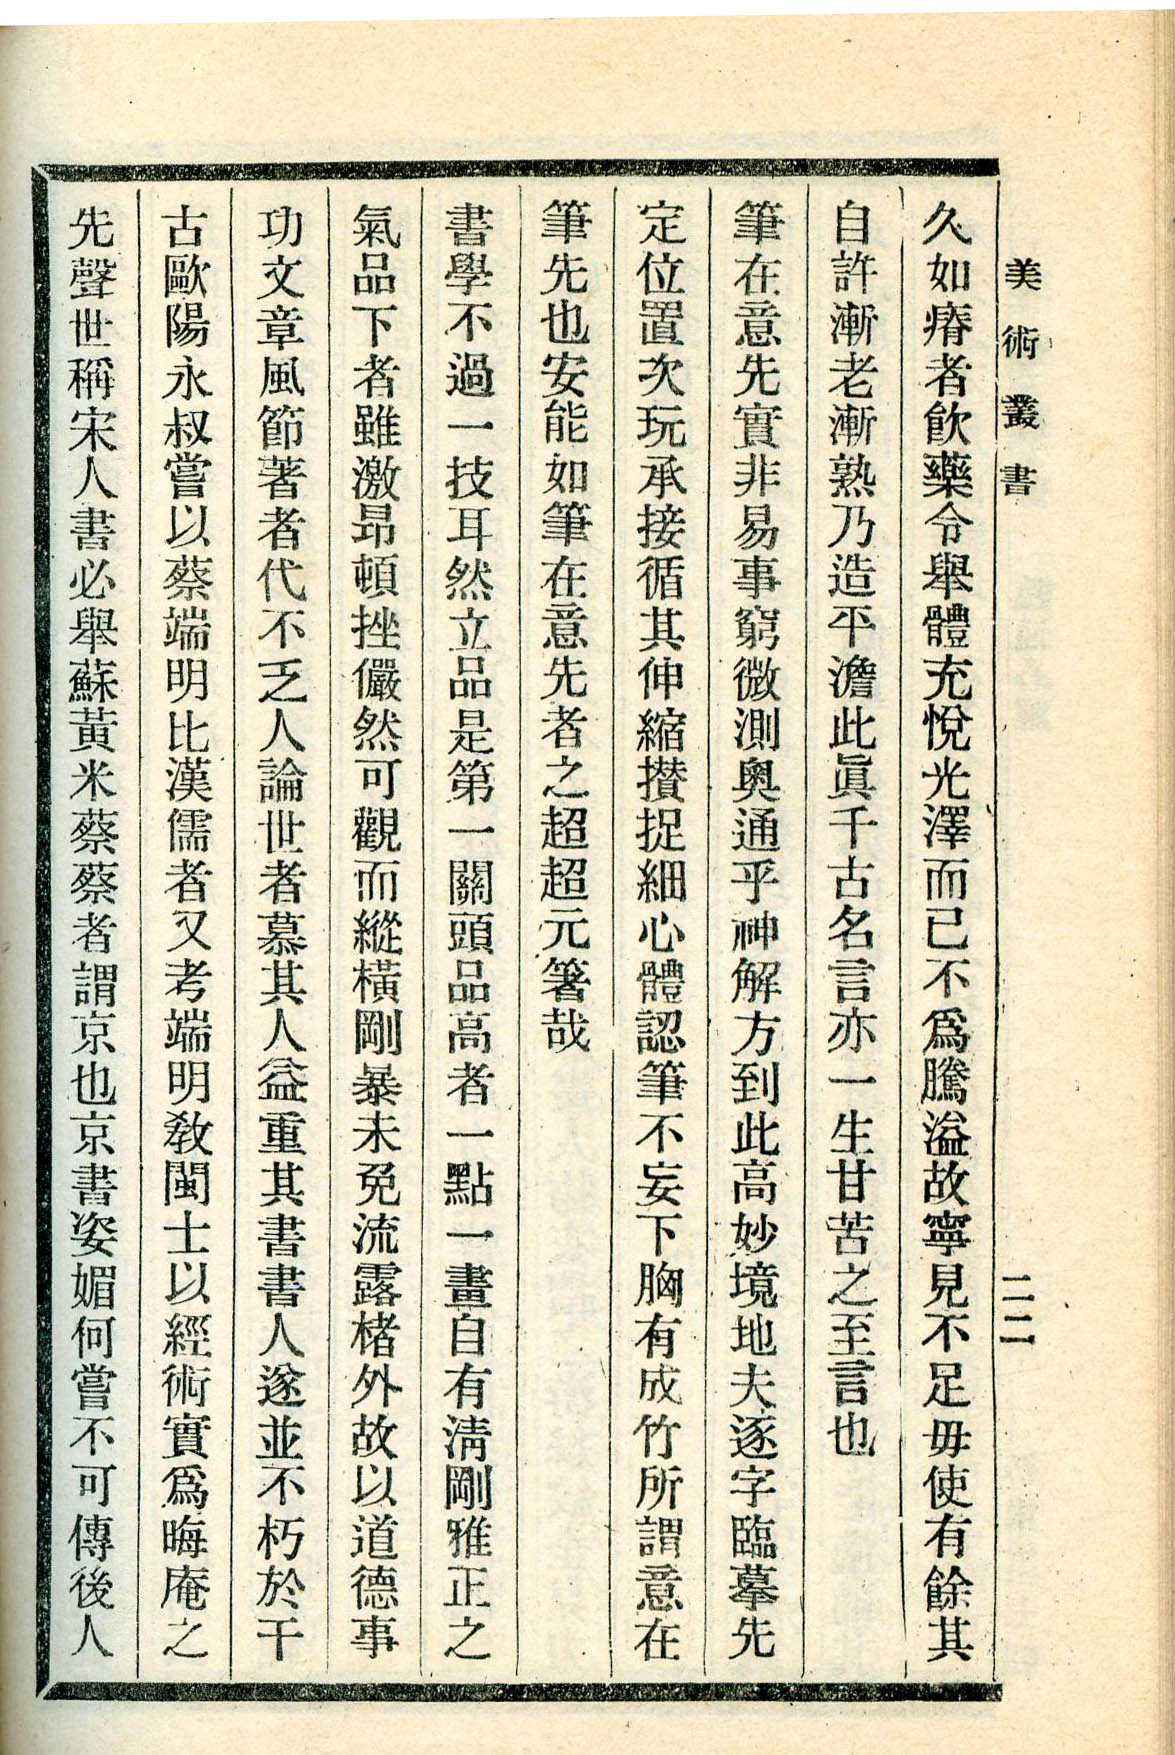 美術叢書 二二
久如瘠者飮藥令舉體充悅光澤而已不爲騰溢故寧見不足毋使有餘其
自許漸老漸熟乃造平澹此眞千古名言亦一生甘苦之至言也
筆在意先實非易事窮微測奧通乎神解方到此高妙境地夫逐字臨摹先
定位置次玩承接循其伸縮攅捉細心體認筆不妄下胸有成竹所謂意在
筆先也安能如筆在意先者之超超元箸哉
書學不過一技耳然立品是第一關頭品高者一點一畫自有淸剛雅正之
氣品下者雖激昂頓挫儼然可觀而縱橫剛暴未免流露楮外故以道德事
功文章風節著者代不乏人論世者慕其人益重其書書人遂並不朽於千
古歐陽永叔嘗以蔡端明比漢儒者又考端明敎閩士以經術實爲晦庵之
先聲世稱宋人書必舉蘇黃米蔡蔡者謂京也京書姿媚何嘗不可傳後人